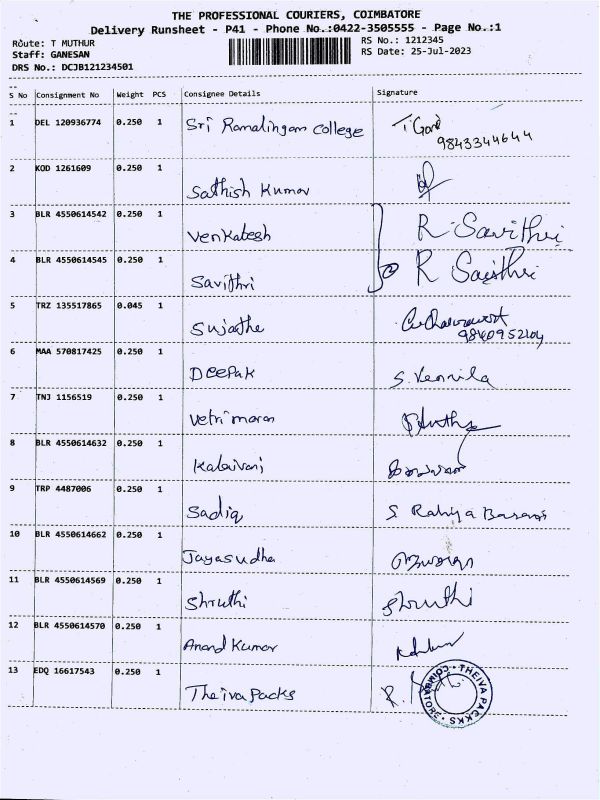 THE PROFESSIONAL COURIERS, COIMBATORE
Delivery Runsheet - P41 - Phone No.:0422-3505555 - Page No.:1
Route: T MUTHUR RS No.: 1212345
Staff: GANESAN RS Date: 25-Jul-2023
DRS No.: DCJB121234501
S No Consignment No Weight PCS Consignee Details Signature
1 DEL 120936774 0.250 1 Sri Ramalingam College
9843344644
2 KOD 1261609 0.250 1 Sathish Kumar
3 BLR 4550614542 0.250 1 Venkatesh R. Savithri
4 BLR 4550614545 0.250 1 Savithri R Savithri
5 TRZ 135517865 0.045 1 Sujatha
6 MAA 570817425 0.250 1 Deepak S. Vennila
7 TNJ 1156519 0.250 1 Vetri maran
8 BLR 4550614632 0.250 1 Kalaivani
9 TRP 4487006 0.250 1 Sadiq
10 BLR 4550614662 0.250 1 Jayasudha
11 BLR 4550614569 0.250 1 Shruthi Shruthi
12 BLR 4550614570 0.250 1 Anand Kumar
13 EDQ 16617543 0.250 1 Theiva Packs R.
THEIVA PACKKS